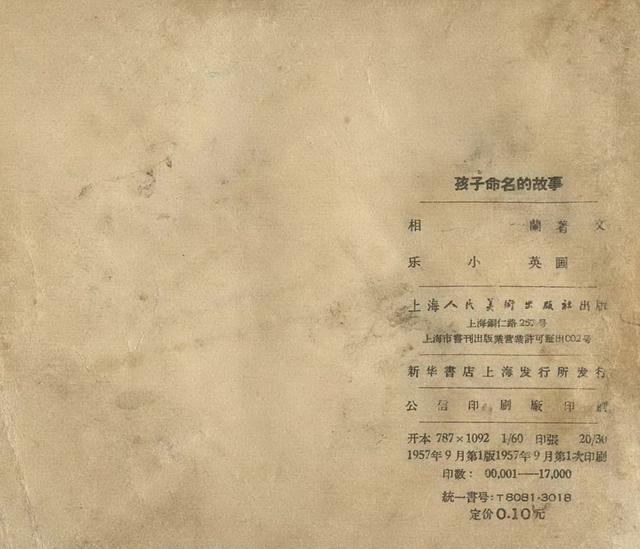 孩子命名的故事
相 蘭 著 文
乐 小 英 圖
上海人民美術出版社出版
上海銅仁路257号
上海市書刊出版業营業許可証出002号
新华書店上海发行所发行
公信印刷廠印刷
开本 787×1092 1/60 印張 20/30
1957年9月第1版1957年9月第1次印刷
印数: 00,001——17,000
統一書号:T8081·3018
定价0.10元